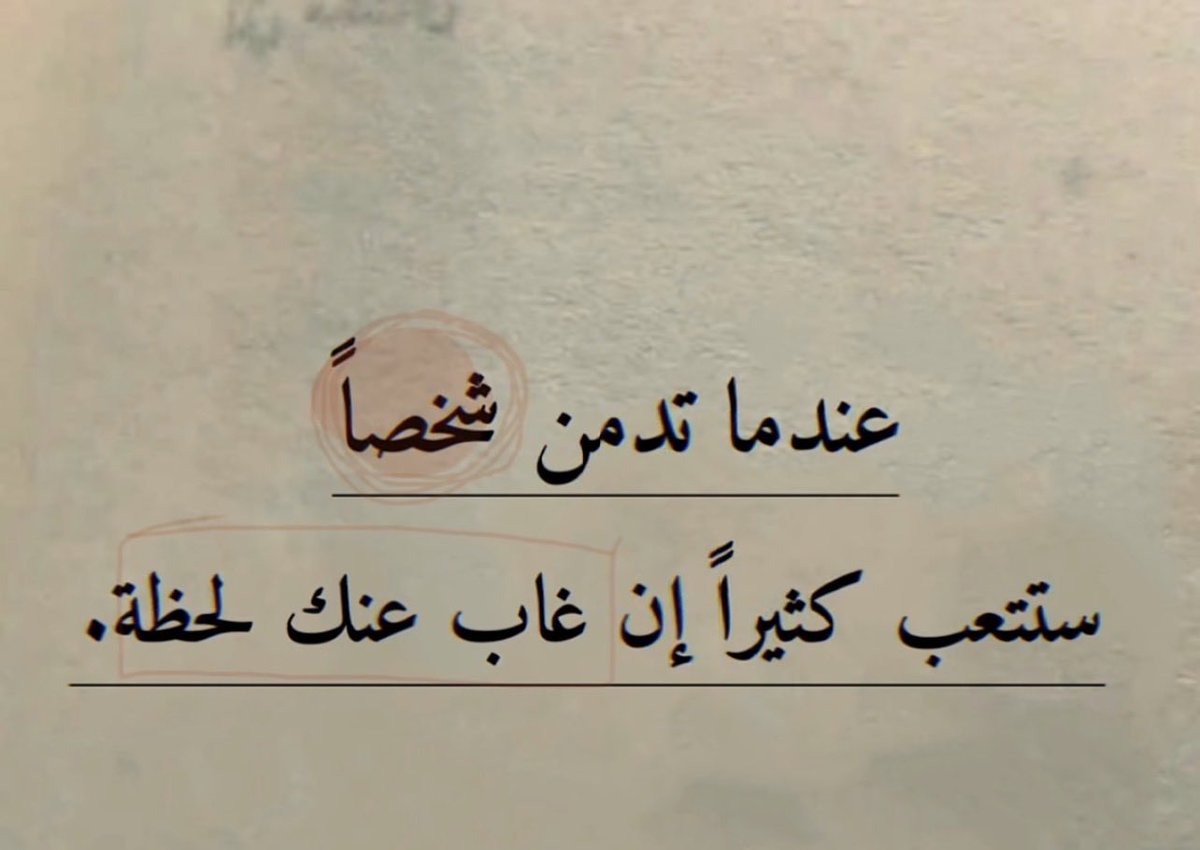 عندما تدمن شخصاً
ستتعب كثيراً إن غاب عنك لحظة.